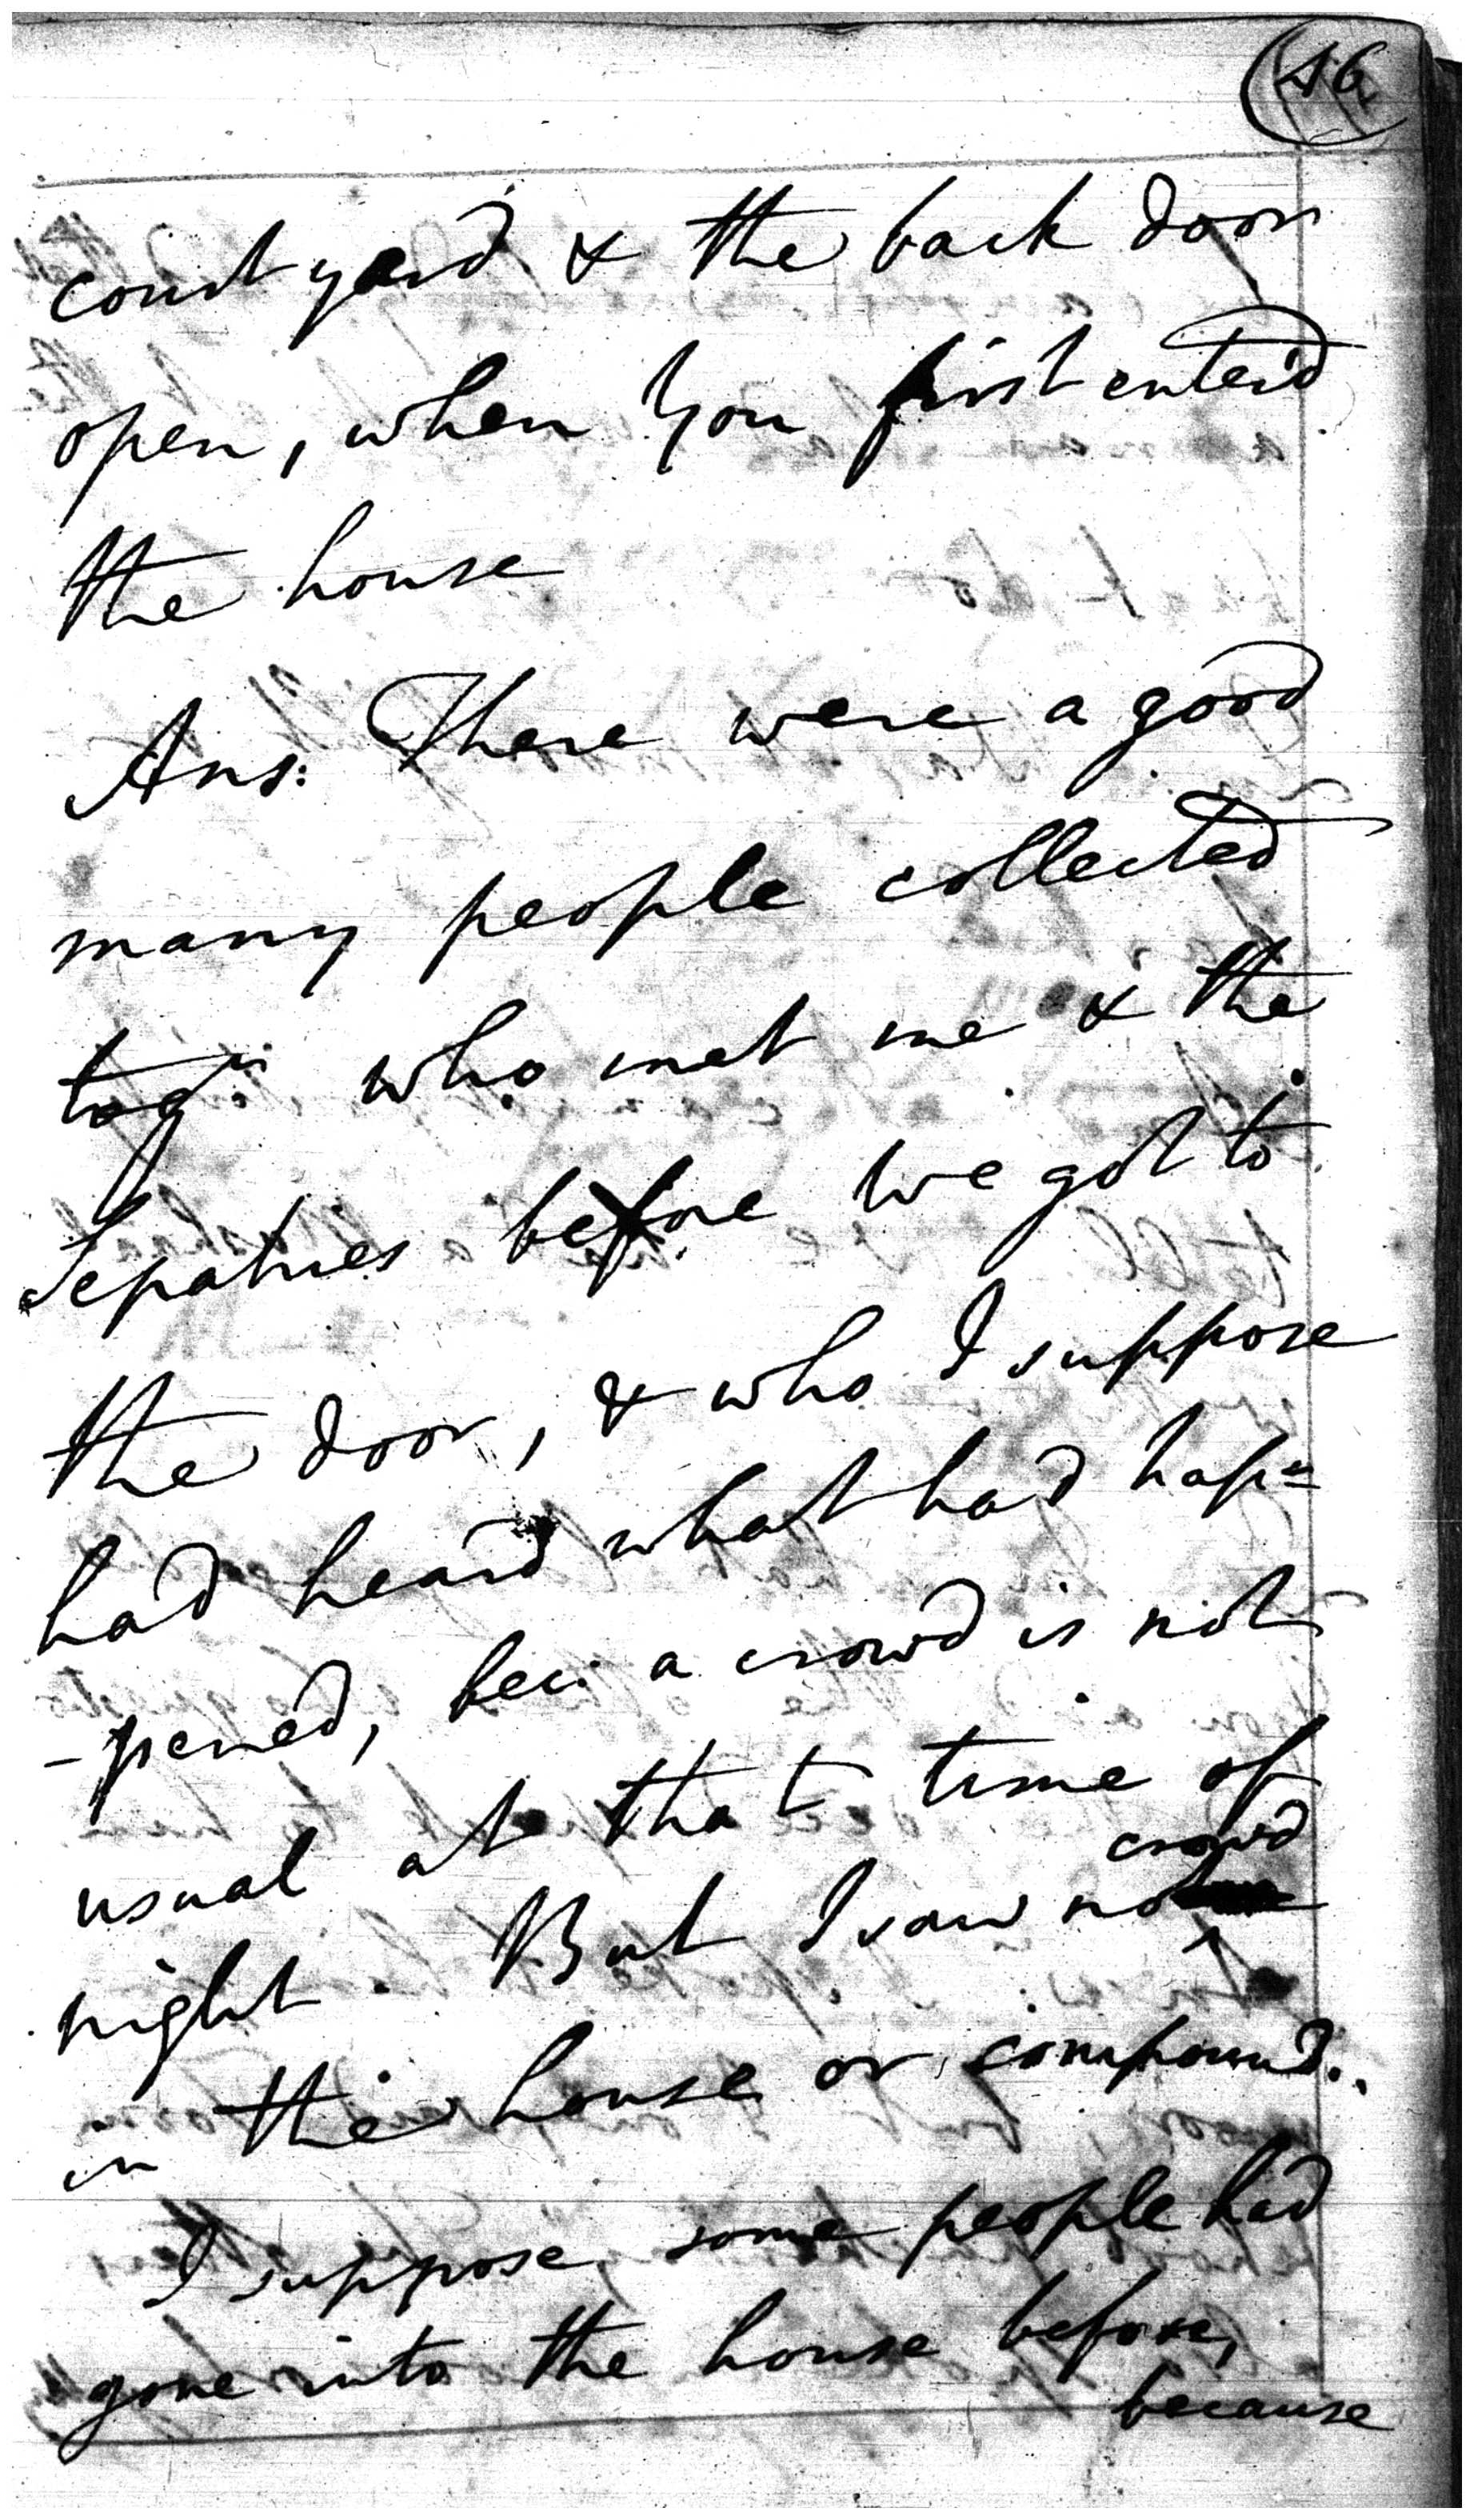 (46
court yard & the back door
open, when you first enter'd
the house
Ans: There were a good
many people collected
togr. who met me & the
Sepatries before we got to
the door, & who I suppose
had heard what had hap=
-pened, bec: a crowd is not
usual at that time of
crowd
night. But I saw no
in the house or compound.
I suppose some people had
gone into the house before,
because